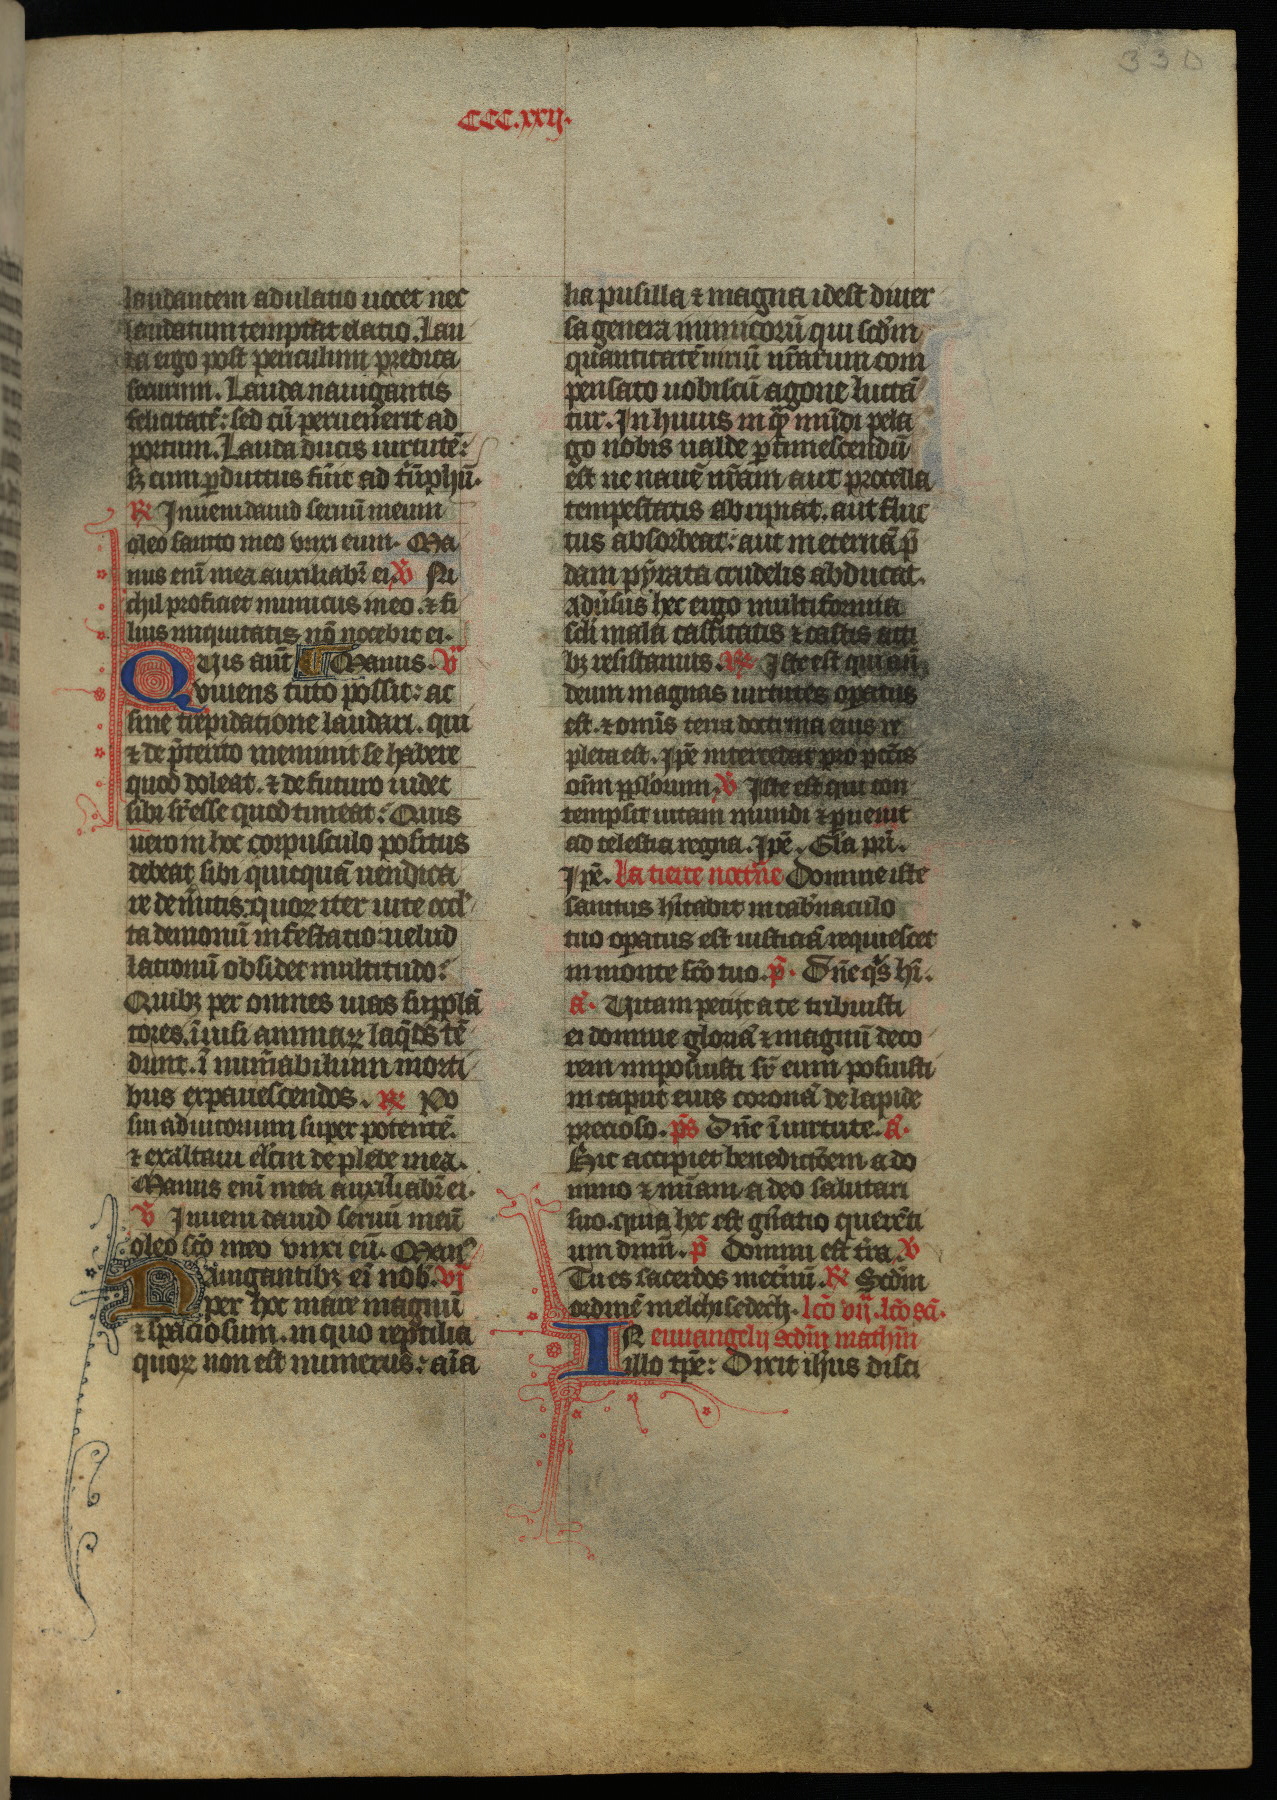 330
CCC.xxij.
laudantem adulatio nocet nec
laudatum temptat elatio. Lau
da ergo post periculum predica
securum. Lauda nauigantis
felicitatē: sed cū peruenerit ad
portum. Lauda ducis uirtutē:
sꝫ cum ꝑductus fuīt ad tͥūphū.
℟ Inueni dauid seruū meum
oleo sancto meo vnxi eum. Ma
nus enī mea auxiliabr̄ ei. ℣ Ni
chil proficiet inimicus meo. ⁊ fi
lius iniquitatis nō nocebit ei.
QUis aūt Manus. v̄
viuens tuto possit: ac
sine trepidatione laudari. qui
⁊ de p̄terito meminit se habere
quod doleat. ⁊ de futuro uidet
sibi sr̄esse quod timeat: Quis
uero in hoc corpusculo positus
debeat sibi quicquā uendica
re de
ta demonū infestatio: uelud
lationū obsidet multitudo:
Quibꝫ per omnes uias supplā
tores. ī uisi animaꝝ laq̄os tē
dunt. ī numabilium morti
bus expauescendos. ℟ Po
sui adiutorium super potentē.
⁊ exaltaui elcm̄ de plebe mea.
Manus enī mea auxiliabr̄ ei.
℣ Inueni dauid seruū meū
oleo sc̄o meo vnxi eū. Man
NAuigantibꝫ eī nob. vj
per hoc mare magnū
⁊ spaciosum. in quo reptilia
quoꝝ non est numerus: aīa
lia pusilla ⁊ magna idest diuer
sa genera inimicorū qui scdm̄
quantitatē uiriū nr̄arum com
pensato nobiscū agone luctā
tur. In huius in q̄ mūdi pela
go nobis ualde ꝑtimescendū
est ne nauē nr̄am aut procella
tempestatis abripiat. aut fluc
tus absorbeat: aut in eternā p̄
dam pyrata crudelis abducat.
Adūsus hec ergo multiformia
scl̄i mala castitatis ⁊ castis acti
bꝫ resistamus. ℟ Iste est qui an̄
deum magnas uirtutes oꝑatus
est. ⁊ omīs terra doctrina eius re
pleta est. Ipē intercedat pro pcc̄is
oīm ppl̄orum. ℣ Iste est qui con
tempsit uitam mundi ⁊ ꝑuenit
ad celestia regna. Ipē. Gl̄a pri.
Ipē. La tierce noct̄ne Domine iste
sanctus hītabit in tab̄naculo
tuo oꝑatus est iusticiā requiescet
in monte sc̄o tuo. p̄. Dn̄e q̄s hī.
a᷑. Uitam petijt a te tribuisti
ei domine gloriā ⁊ magnū deco
rem imposuisti sr̄ eum posuisti
in caput eius coronā de lapide
precioso. p̄s Dn̄e ī uirtute. a᷑.
Hic accipiet benedictōem a do
mino ⁊ mīam a deo salutari
suo. quia hec est gn̄atio querēti
um dnm̄. p̄ Domini est tr̄a. ℣
Tu es sacerdos inet̄nū. ℟ Scdm̄
ordinē melchisedech. lcō vij. lcō sc̄i.
IN euuangelij scdm̄ mathm̄
illo tp̄e: Dixit ihūs disci